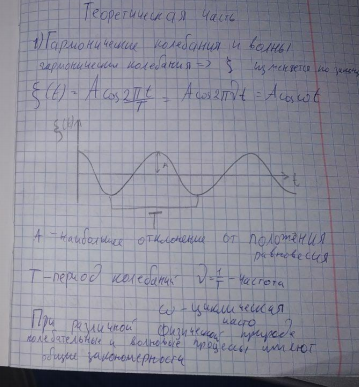 Теоретическая часть
1) Гармонические колебания и волны
гармонические колебания => ξ изменяется по
ξ(t) = A cos 2πt/T = A cos 2πνt = A cos ωt
ξ(t)
A
t
T
A - наибольшее отклонение от положения
равновесия
T - период колебаний ν = 1/T - частота
ω - циклическая
частота
При различной физической природе
колебательные и волновые процессы имеют
общие закономерности